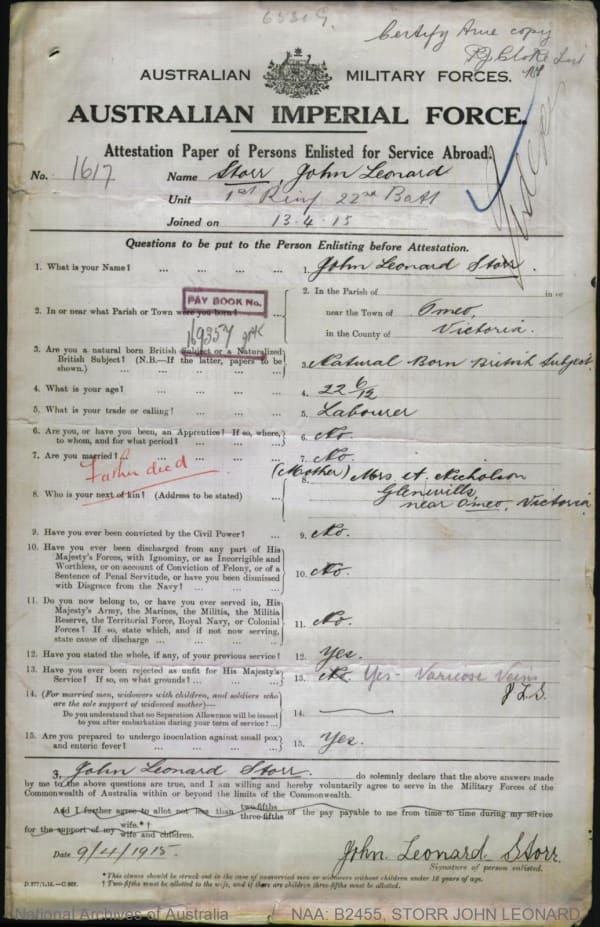 6531 G.
Certify true copy
AUSTRALIAN MILITARY FORCES.
AUSTRALIAN IMPERIAL FORCE.
Attestation Paper of Persons Enlisted for Service Abroad.
No. 1617 Name Storr, John Leonard
Unit 1st Reinf 22nd Batt
Joined on 13.4.15
Questions to be put to the Person Enlisting before Attestation.
1. What is your Name? ... ... ... ... 1. John Leonard Storr.
2. In the Parish of in or
PAY BOOK No.
2. In or near what Parish or Town were you born? near the Town of Omeo,
in the County of Victoria.
3. Are you a natural born British Subject or a Naturalized
British Subject? (N.B.—If the latter, papers to be
shown.) ... ... ... ... 3. Natural Born British Subject
4. What is your age? ... ... ... ... 4. 22 6/12
5. What is your trade or calling? ... ... ... 5. Labourer
6. Are you, or have you been, an Apprentice? If so, where,
to whom, and for what period? ... ... ... 6. No.
7. Are you married? ... 7. No.
Father died
(Mother) Mrs A. Nicholson
8. Who is your next of kin? (Address to be stated) ... 8. Glenwills,
near Omeo, Victoria
9. Have you ever been convicted by the Civil Power? ... 9. No.
10. Have you ever been discharged from any part of His
Majesty's Forces, with Ignominy, or as Incorrigible and
Worthless, or on account of Conviction of Felony, or of a
Sentence of Penal Servitude, or have you been dismissed
with Disgrace from the Navy? ... ... ... 10. No.
11. Do you now belong to, or have you ever served in, His
Majesty's Army, the Marines, the Militia, the Militia
Reserve, the Territorial Force, Royal Navy, or Colonial
Forces? If so, state which, and if not now serving,
state cause of discharge ... ... ... ... 11. No.
12. Have you stated the whole, if any, of your previous service? 12. Yes.
13. Have you ever been rejected as unfit for His Majesty's
Service? If so, on what grounds? ... ... ... 13. No. Yes - Varicose Veins
J L S.
14. (For married men, widowers with children, and soldiers who
are the sole support of widowed mother)—
Do you understand that no Separation Allowance will be issued
to you after embarkation during your term of service? ... 14.
15. Are you prepared to undergo inoculation against small pox
and enteric fever? ... ... ... ... 15. Yes.
3, John Leonard Storr. do solemnly declare that the above answers made
by me to the above questions are true, and I am willing and hereby voluntarily agree to serve in the Military Forces of the
Commonwealth of Australia within or beyond the limits of the Commonwealth.
And I further agree to allot not less than two-fifths three-fifths of the pay payable to me from time to time during my service
for the support of my wife.*† wife and children.
Date 9/4/1915. John Leonard Storr.
Signature of person enlisted.
* This clause should be struck out in the case of unmarried men or widowers without children under 18 years of age.
† Two-fifths must be allotted to the wife, and if there are children three-fifths must be allotted.
D.377/1.15.—C.895.
National Archives of Australia NAA: B2455, STORR JOHN LEONARD